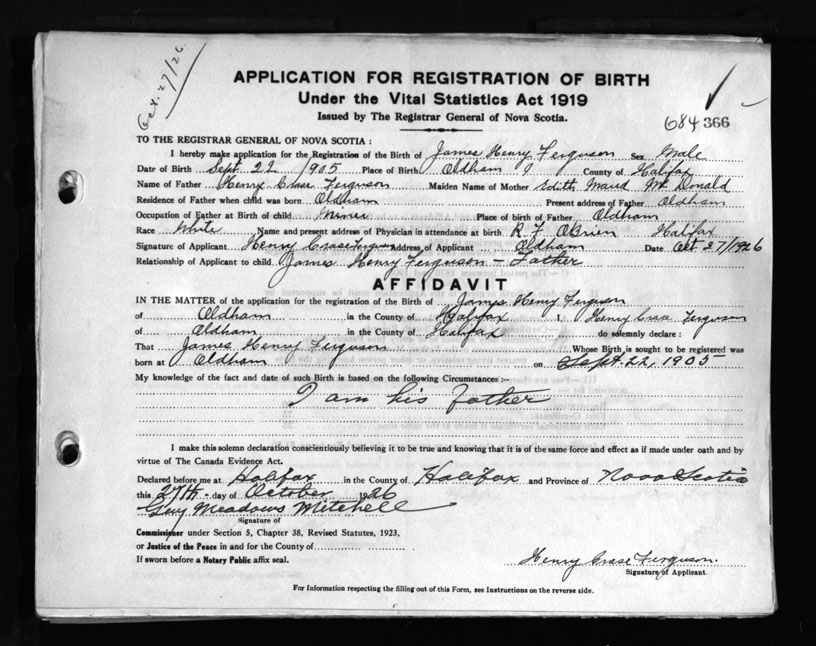 Oct. 27/26.
APPLICATION FOR REGISTRATION OF BIRTH
Under the Vital Statistics Act 1919
Issued by The Registrar General of Nova Scotia.
684 366
TO THE REGISTRAR GENERAL OF NOVA SCOTIA :
I hereby make application for the Registration of the Birth of James Henry Ferguson Sex Male
Date of Birth Sept 22 1905 Place of Birth Oldham County of Halifax
Name of Father Henry Crase Ferguson Maiden Name of Mother Edith Maud McDonald
Residence of Father when child was born Oldham Present address of Father Oldham
Occupation of Father at Birth of child Miner Place of birth of Father Oldham
Race White Name and present address of Physician in attendance at birth R. F. OBrien Halifax
Signature of Applicant Henry Crase Ferguson Address of Applicant Oldham Date Oct 27/1926
Relationship of Applicant to child James Henry Ferguson - Father
AFFIDAVIT
IN THE MATTER of the application for the registration of the Birth of James Henry Ferguson
of Oldham in the County of Halifax I, Henry Crase Ferguson
of Oldham in the County of Halifax do solemnly declare :
That James Henry Ferguson Whose Birth is sought to be registered was
born at Oldham on Sept. 22, 1905
My knowledge of the fact and date of such Birth is based on the following Circumstances :-
I am his father
I make this solemn declaration conscientiously believing it to be true and knowing that it is of the same force and effect as if made under oath and by
virtue of The Canada Evidence Act.
Declared before me at Halifax in the County of Halifax and Province of Nova Scotia
this 27th - day of October 1926
Guy Meadows Mitchell
Signature of
Commissioner under Section 5, Chapter 38, Revised Statutes, 1923,
or Justice of the Peace in and for the County of
If sworn before a Notary Public affix seal.
Henry Crase Ferguson.
Signature of Applicant.
For Information respecting the filling out of this Form, see Instructions on the reverse side.